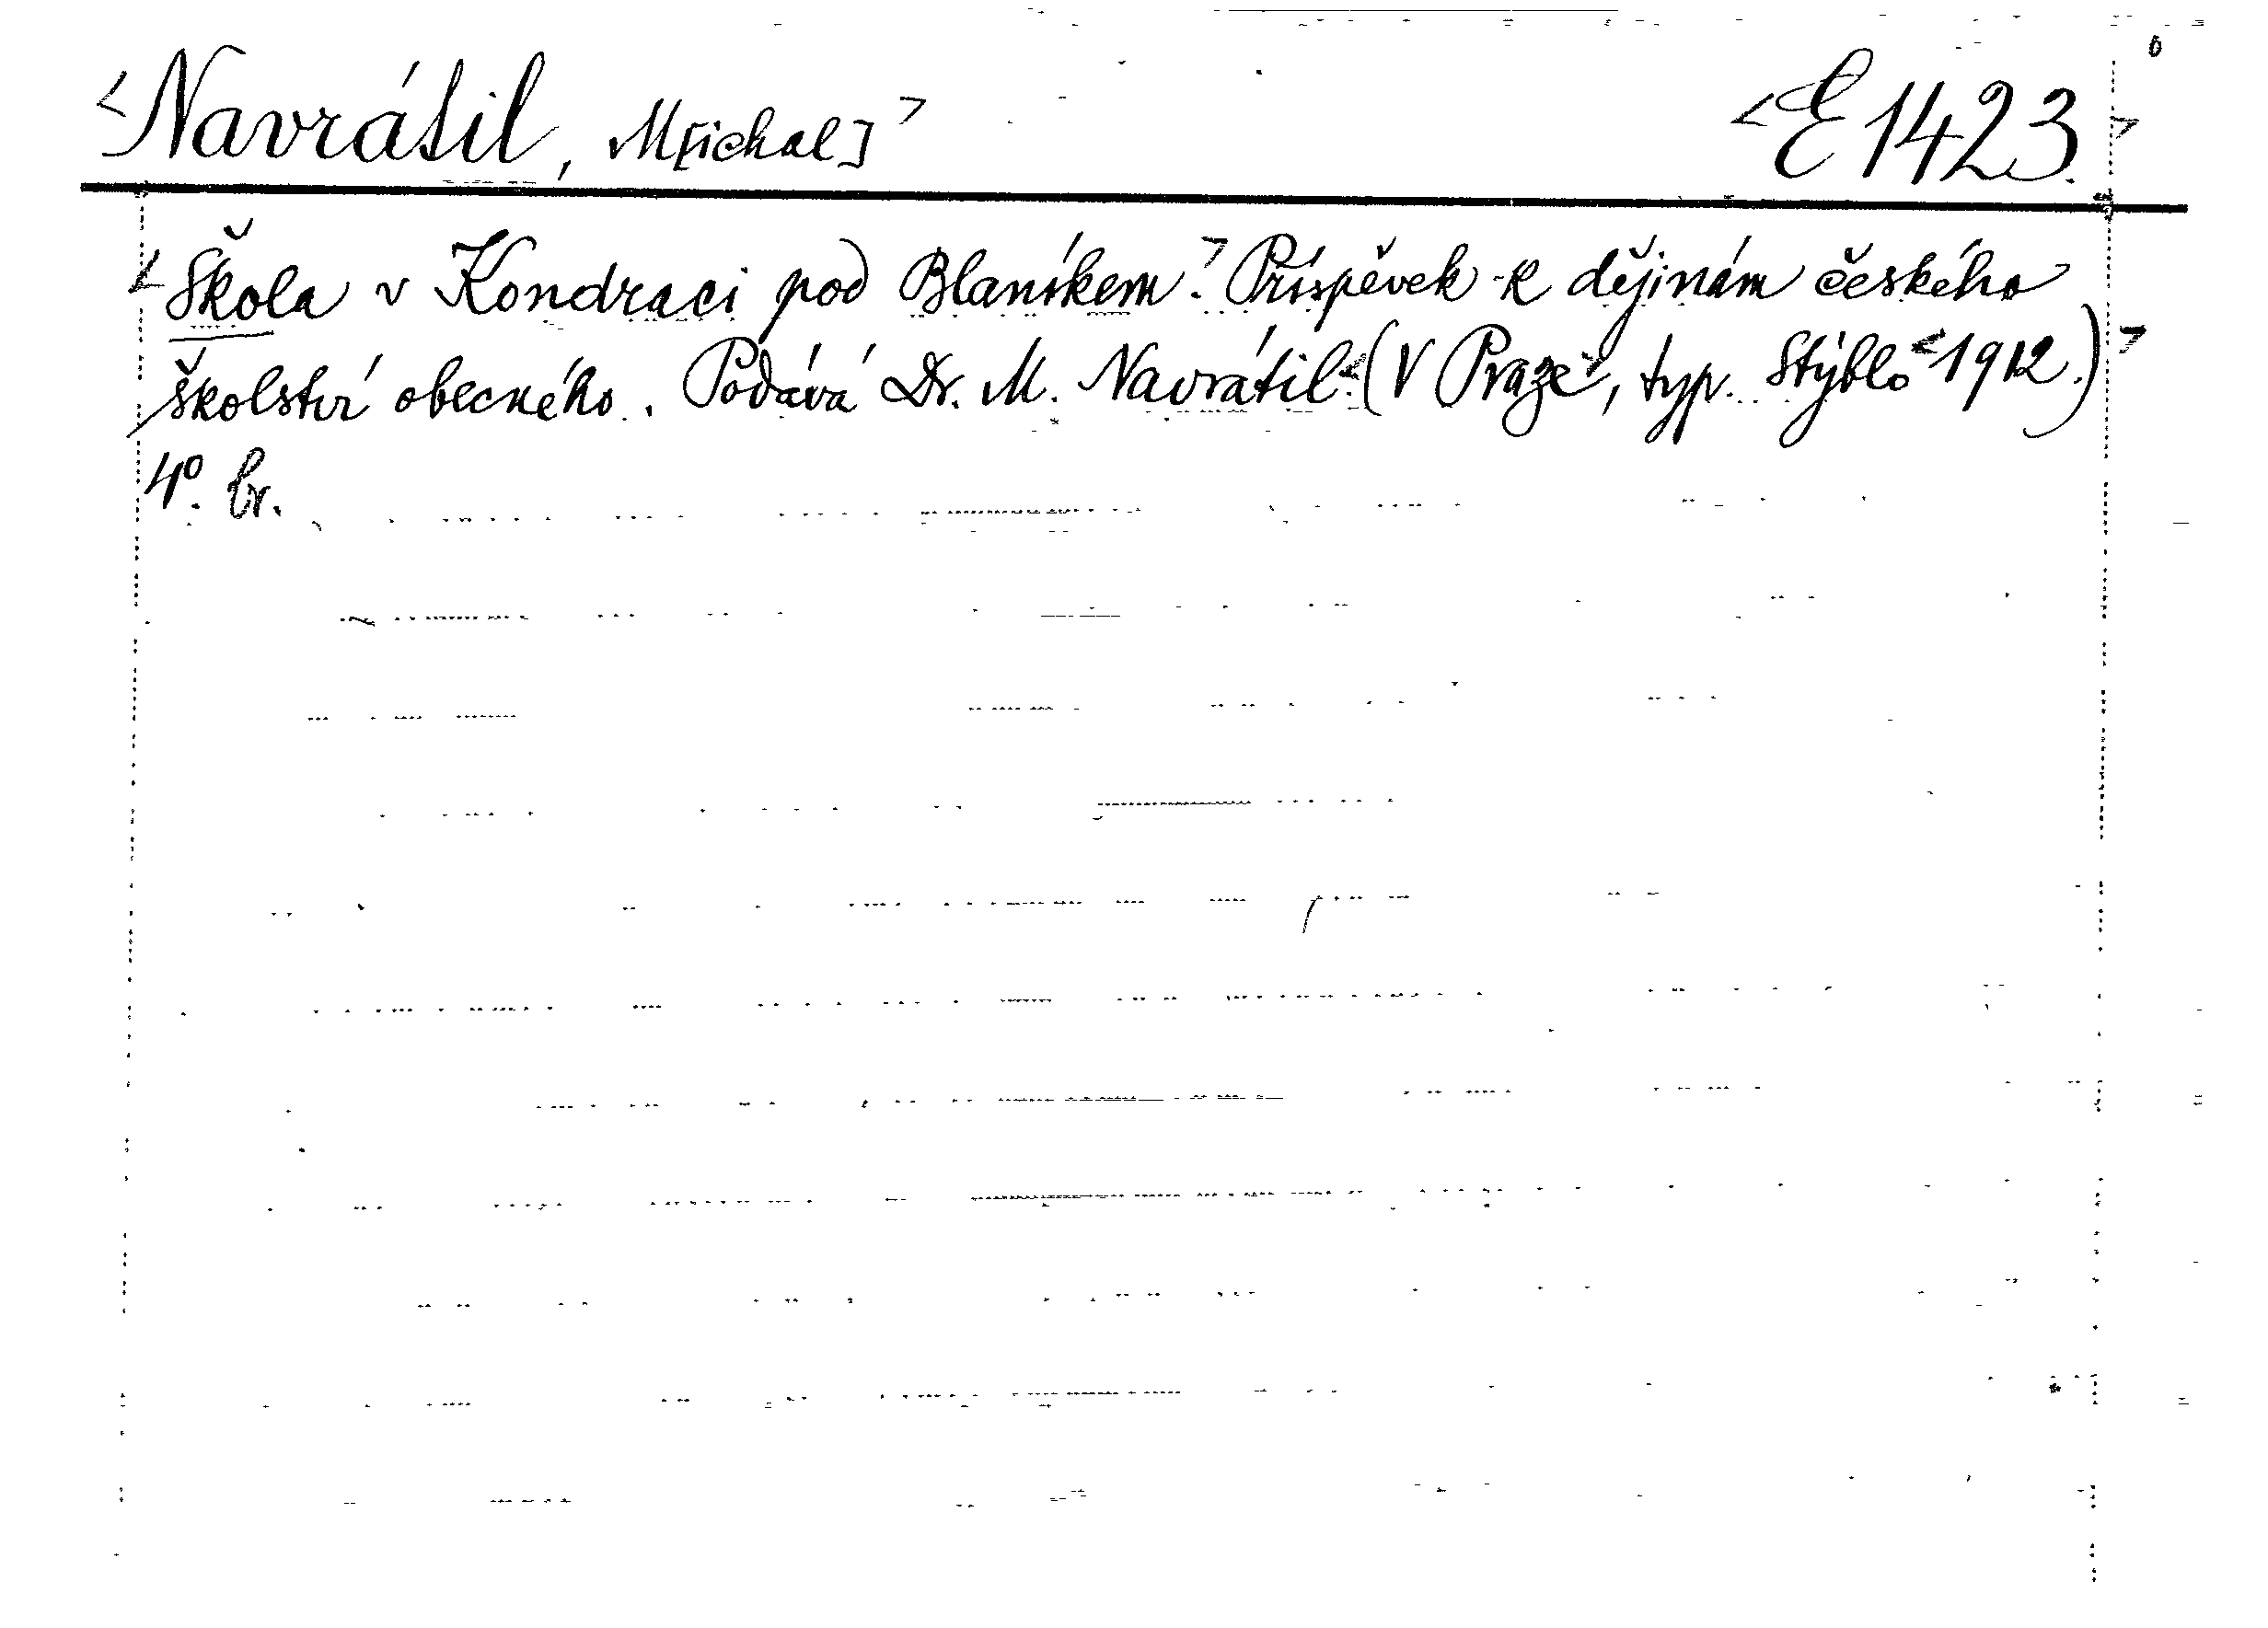 <Navrátil, M[ichal]> <E 1423.>
<Škola v Kondraci pod Blaníkem.> Příspěvek k dějinám českého
školství obecného. Podává Dr. M. Navrátil. <(V Praze>, typ. Stýblo <1912.)>
4º. br.